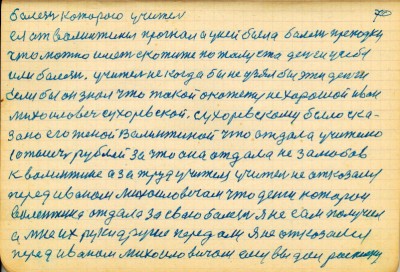 70
болезн которого учител
ел от валинтины прогнал а у ней была болезн
что можно имет скотиже по жалуста денги учебы
или балезн, учител не когда бы не узял бы эти денги
если бы он знал что такой окажетц не харошой иван
михоиловеч сухоревской. сухоревскому было ска-
зано его женой Валинтиной что отдала учителю
10 тысеч рублей за что она отдала не за любов
к валинтине а за труд учителя учител не отказался
перед иваном михоиловичам что денги которои
валентина отдала за свою балезн я не сам получил
а мне их руки другие передали я не отказался
перед иваном михоиловичам если вы дели